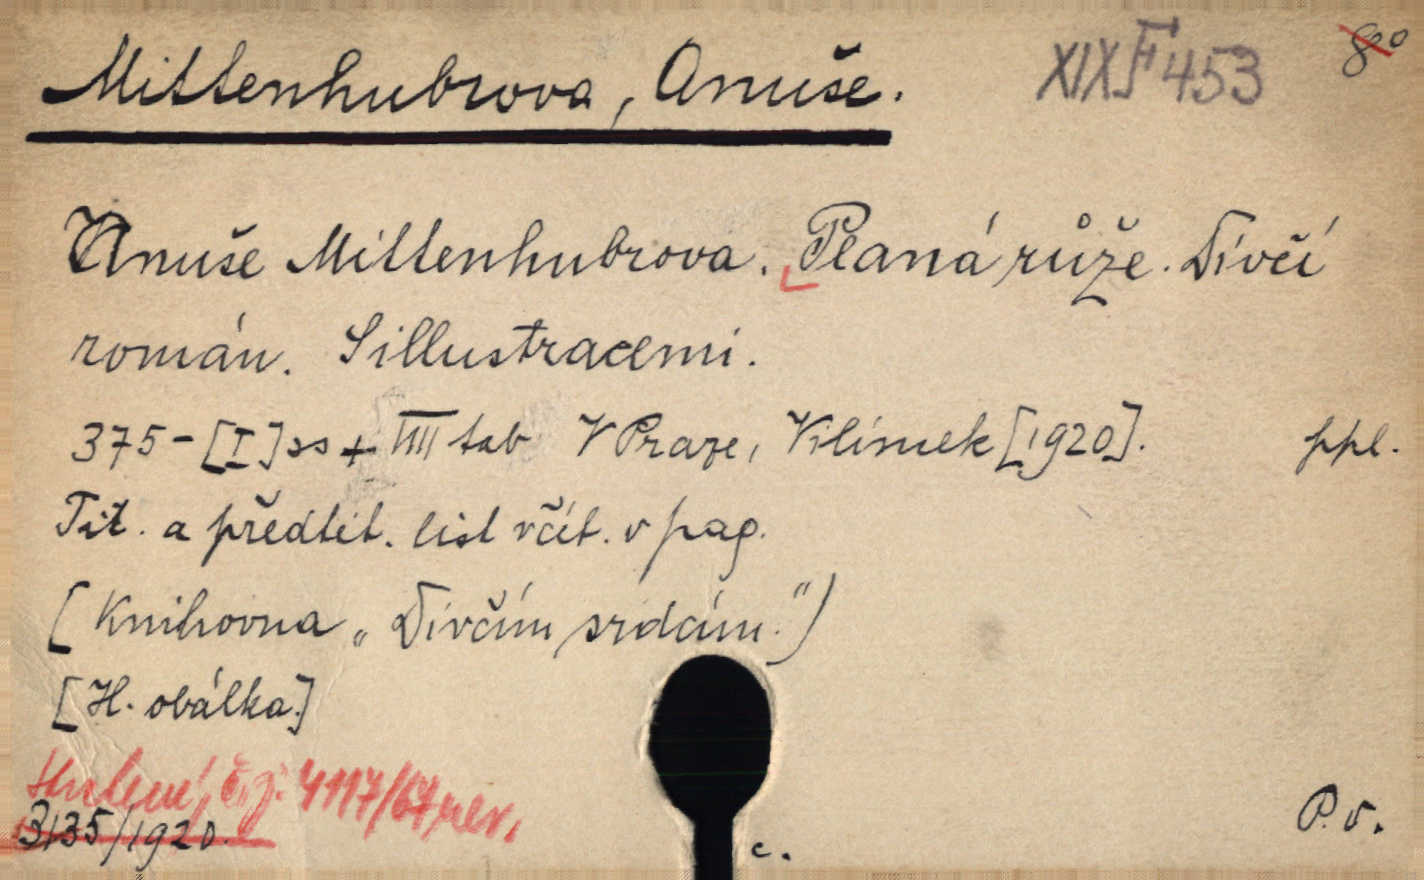 Mittenhubrova, Anuše.
XIX F 453
8°
Anuše Mittenhubrova. Planá růže. Dívčí
román. S illustracemi.
375-[I] ss + IIII tab V Praze, Vilímek [1920]. ppl.
Tit. a předtit. list včít. v pag.
[Knihovna „Dívčím srdcím.")
[H. obálka.]
č.j. 4117/67
3135/1920.
P. v.
c.